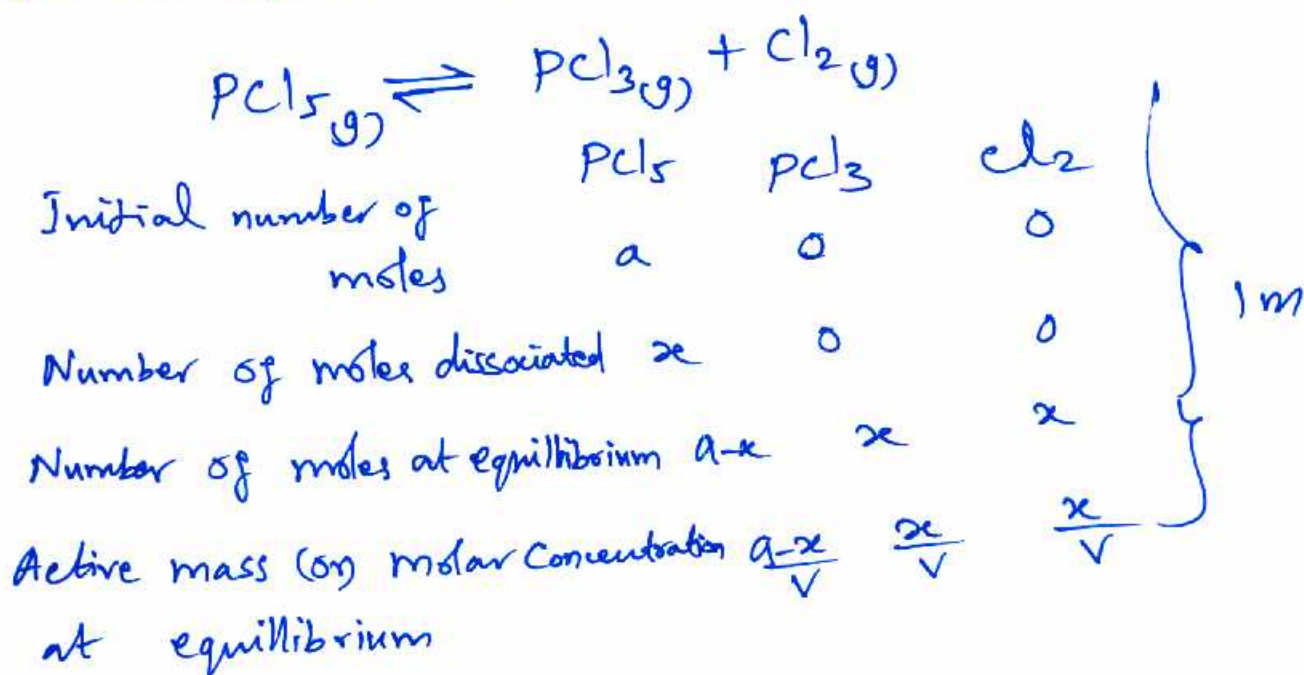 PCl5(g) ⇌ PCl3(g) + Cl2(g)
PCl5 PCl3 Cl2
Initial number of
moles a 0 0
1m
Number of moles dissociated x 0 0
Number of moles at equillibrium a-x x x
Active mass (or) molar Concentration a-x/V x/V x/V
at equillibrium